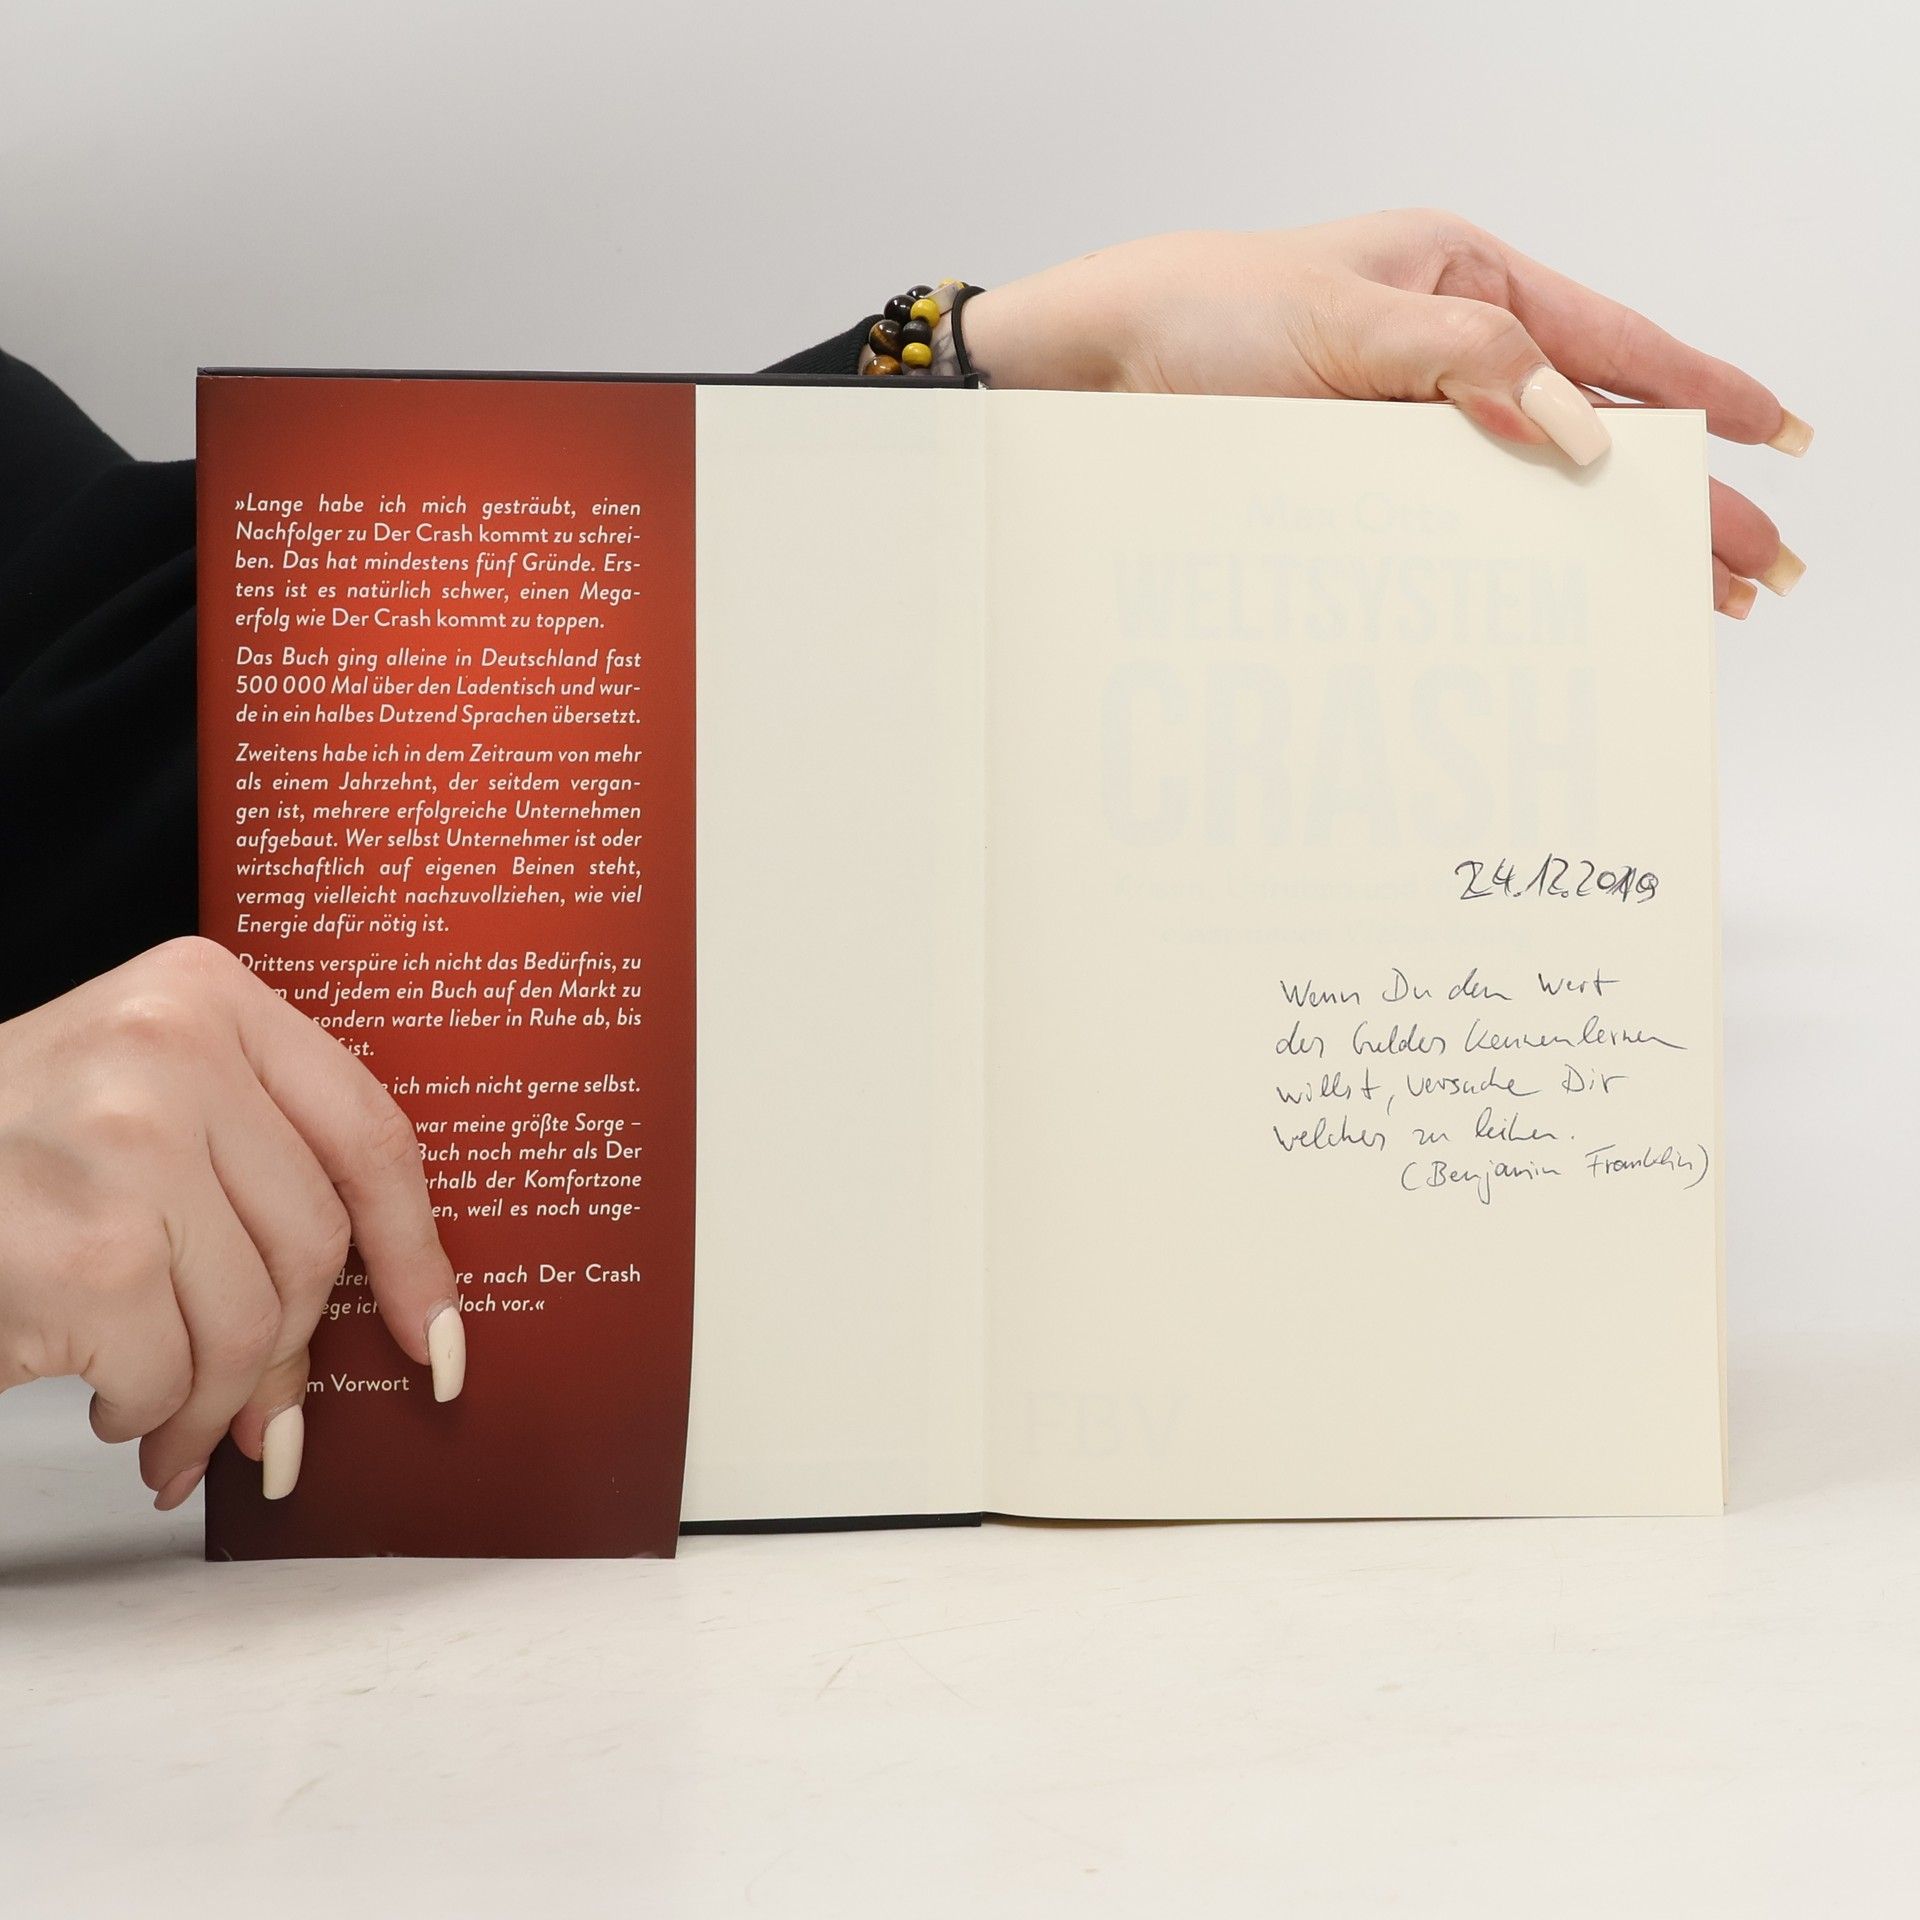 »Lange habe ich mich gesträubt, einen
Nachfolger zu Der Crash kommt zu schrei-
ben. Das hat mindestens fünf Gründe. Ers-
tens ist es natürlich schwer, einen Mega-
erfolg wie Der Crash kommt zu toppen.
Das Buch ging alleine in Deutschland fast
500 000 Mal über den Ladentisch und wur-
de in ein halbes Dutzend Sprachen übersetzt.
Zweitens habe ich in dem Zeitraum von mehr
als einem Jahrzehnt, der seitdem vergan-
gen ist, mehrere erfolgreiche Unternehmen
aufgebaut. Wer selbst Unternehmer ist oder
wirtschaftlich auf eigenen Beinen steht,
vermag vielleicht nachzuvollziehen, wie viel
Energie dafür nötig ist.
Drittens verspüre ich nicht das Bedürfnis, zu
und jedem ein Buch auf den Markt zu
sondern warte lieber in Ruhe ab, bis
ist.
ich mich nicht gerne selbst.
war meine größte Sorge –
Buch noch mehr als Der
der Komfortzone
weil es noch unge-
nach Der Crash
vor.«
Vorwort
WELTSYSTEM
CRASH
FBV
24.12.2019
Wenn Du den Wert
des Geldes kennenlernen
willst, versuche Dir
welches zu leihen.
(Benjamin Franklin)